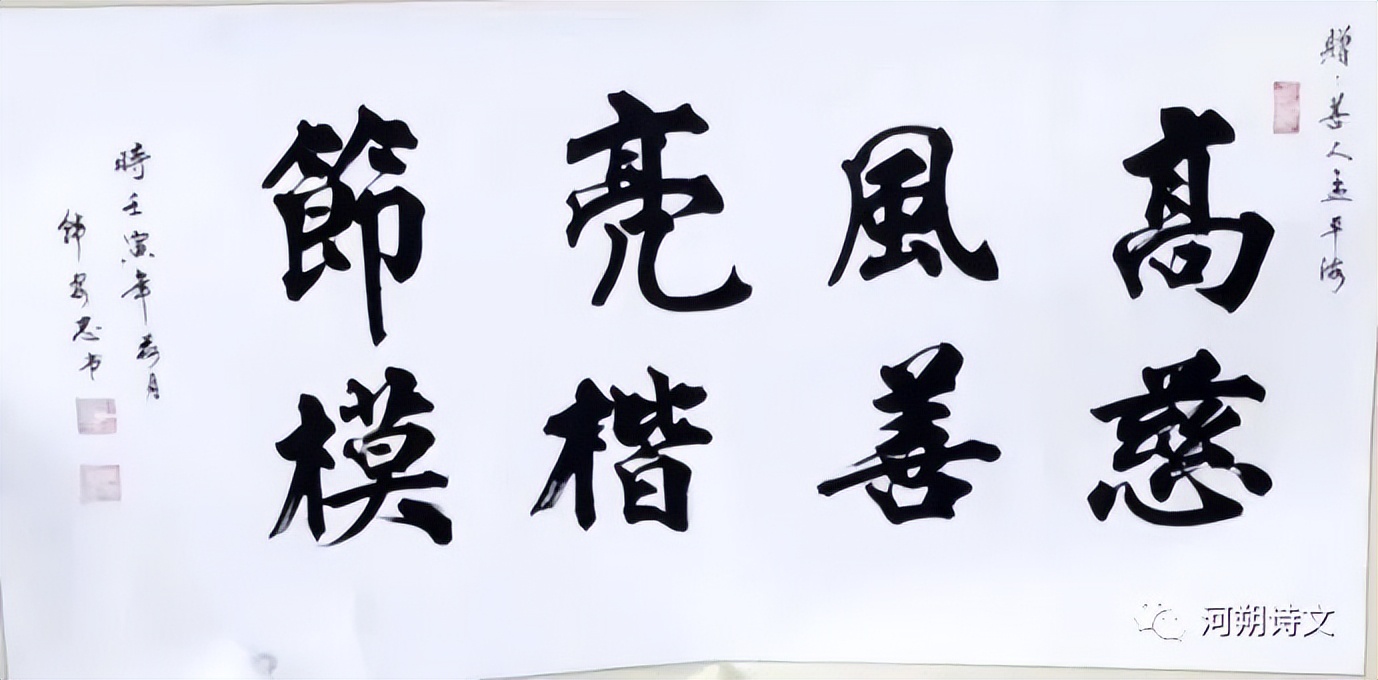 贈·善人孟平海
高風亮節
慈善楷模
時壬寅年月
书
河朔诗文